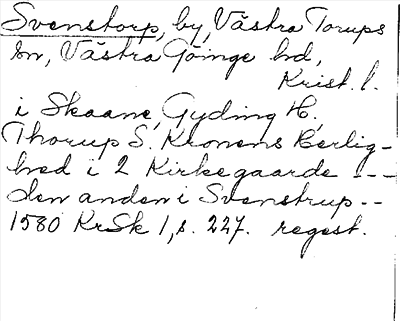 Svenstorp, by, Västra Torups
sn, Västra Göinge hd,
Krist. l.
i Skaane, Gyding H.
Thorup S. Kronens Herlig-
hed i 2 Kirkegaarde ---
den anden i Svenstrup --
1580 KrSk 1, s. 227. regest.